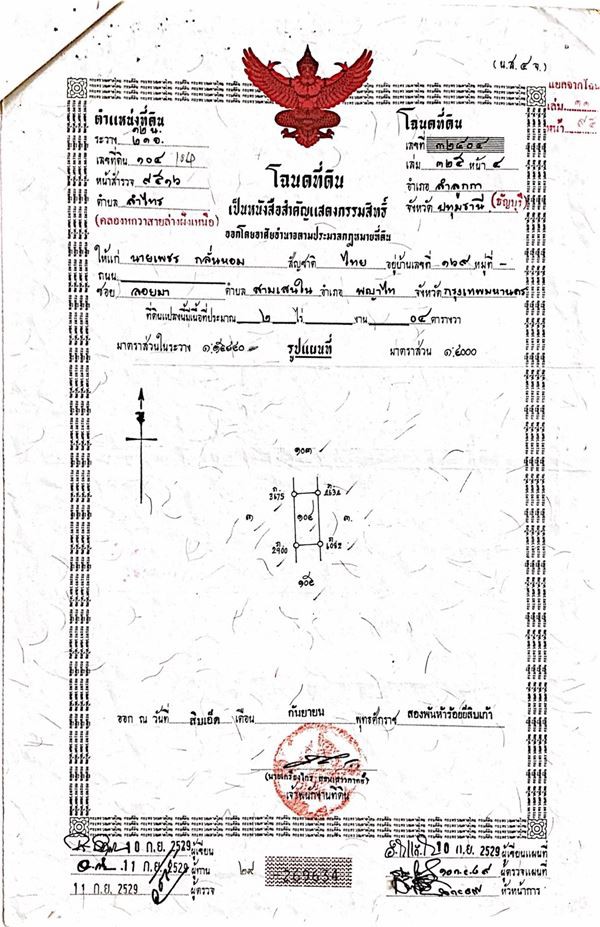 (น.ส.๔ จ.)
แยกจากโฉน
เล่ม ๑๑
หน้า ๙๕
ตำแหน่งที่ดิน
ระวาง ๑๒ น. ๒๑ อ.
เลขที่ดิน ๑๐๔ 104
หน้าสำรวจ ๙๕๑๖
ตำบล ลำไทร
(คลองหกวาสายล่างฝั่งเหนือ)
โฉนดที่ดิน
เลขที่ ๓๒๔๐๔
เล่ม ๓๒๕ หน้า ๔
อำเภอ ลำลูกกา
จังหวัด ปทุมธานี (ธัญบุรี)
โฉนดที่ดิน
เป็นหนังสือสำคัญแสดงกรรมสิทธิ์
ออกโดยอาศัยอำนาจตามประมวลกฎหมายที่ดิน
ให้แก่ นายเพชร กลิ่นหอม สัญชาติ ไทย อยู่บ้านเลขที่ ๑๒๙ หมู่ที่ -
ถนน
ซอย ลอยมา ตำบล สามเสนใน อำเภอ พญาไท จังหวัด กรุงเทพมหานคร
ที่ดินแปลงนี้มีเนื้อที่ประมาณ ๒ ไร่ งาน ๐๔ ตารางวา
มาตราส่วนในระวาง รูปแผนที่ มาตราส่วน ๑:๔๐๐๐
๑๐๓
๓ ๑๐๔ ๓
2900
๑๐๕
ออก ณ วันที่ สิบเอ็ด เดือน กันยายน พุทธศักราช สองพันห้าร้อยยี่สิบเก้า
เจ้าพนักงานที่ดิน
10 ก.ย. 2529 ผู้เขียน
11 ก.ย. 2529 ผู้ทาน
11 ก.ย. 2529 ผู้ตรวจ
๒๙
269634
10 ก.ย. 2529 ผู้เขียนแผนที่
ผู้ตรวจแผนที่
หัวหน้าการ